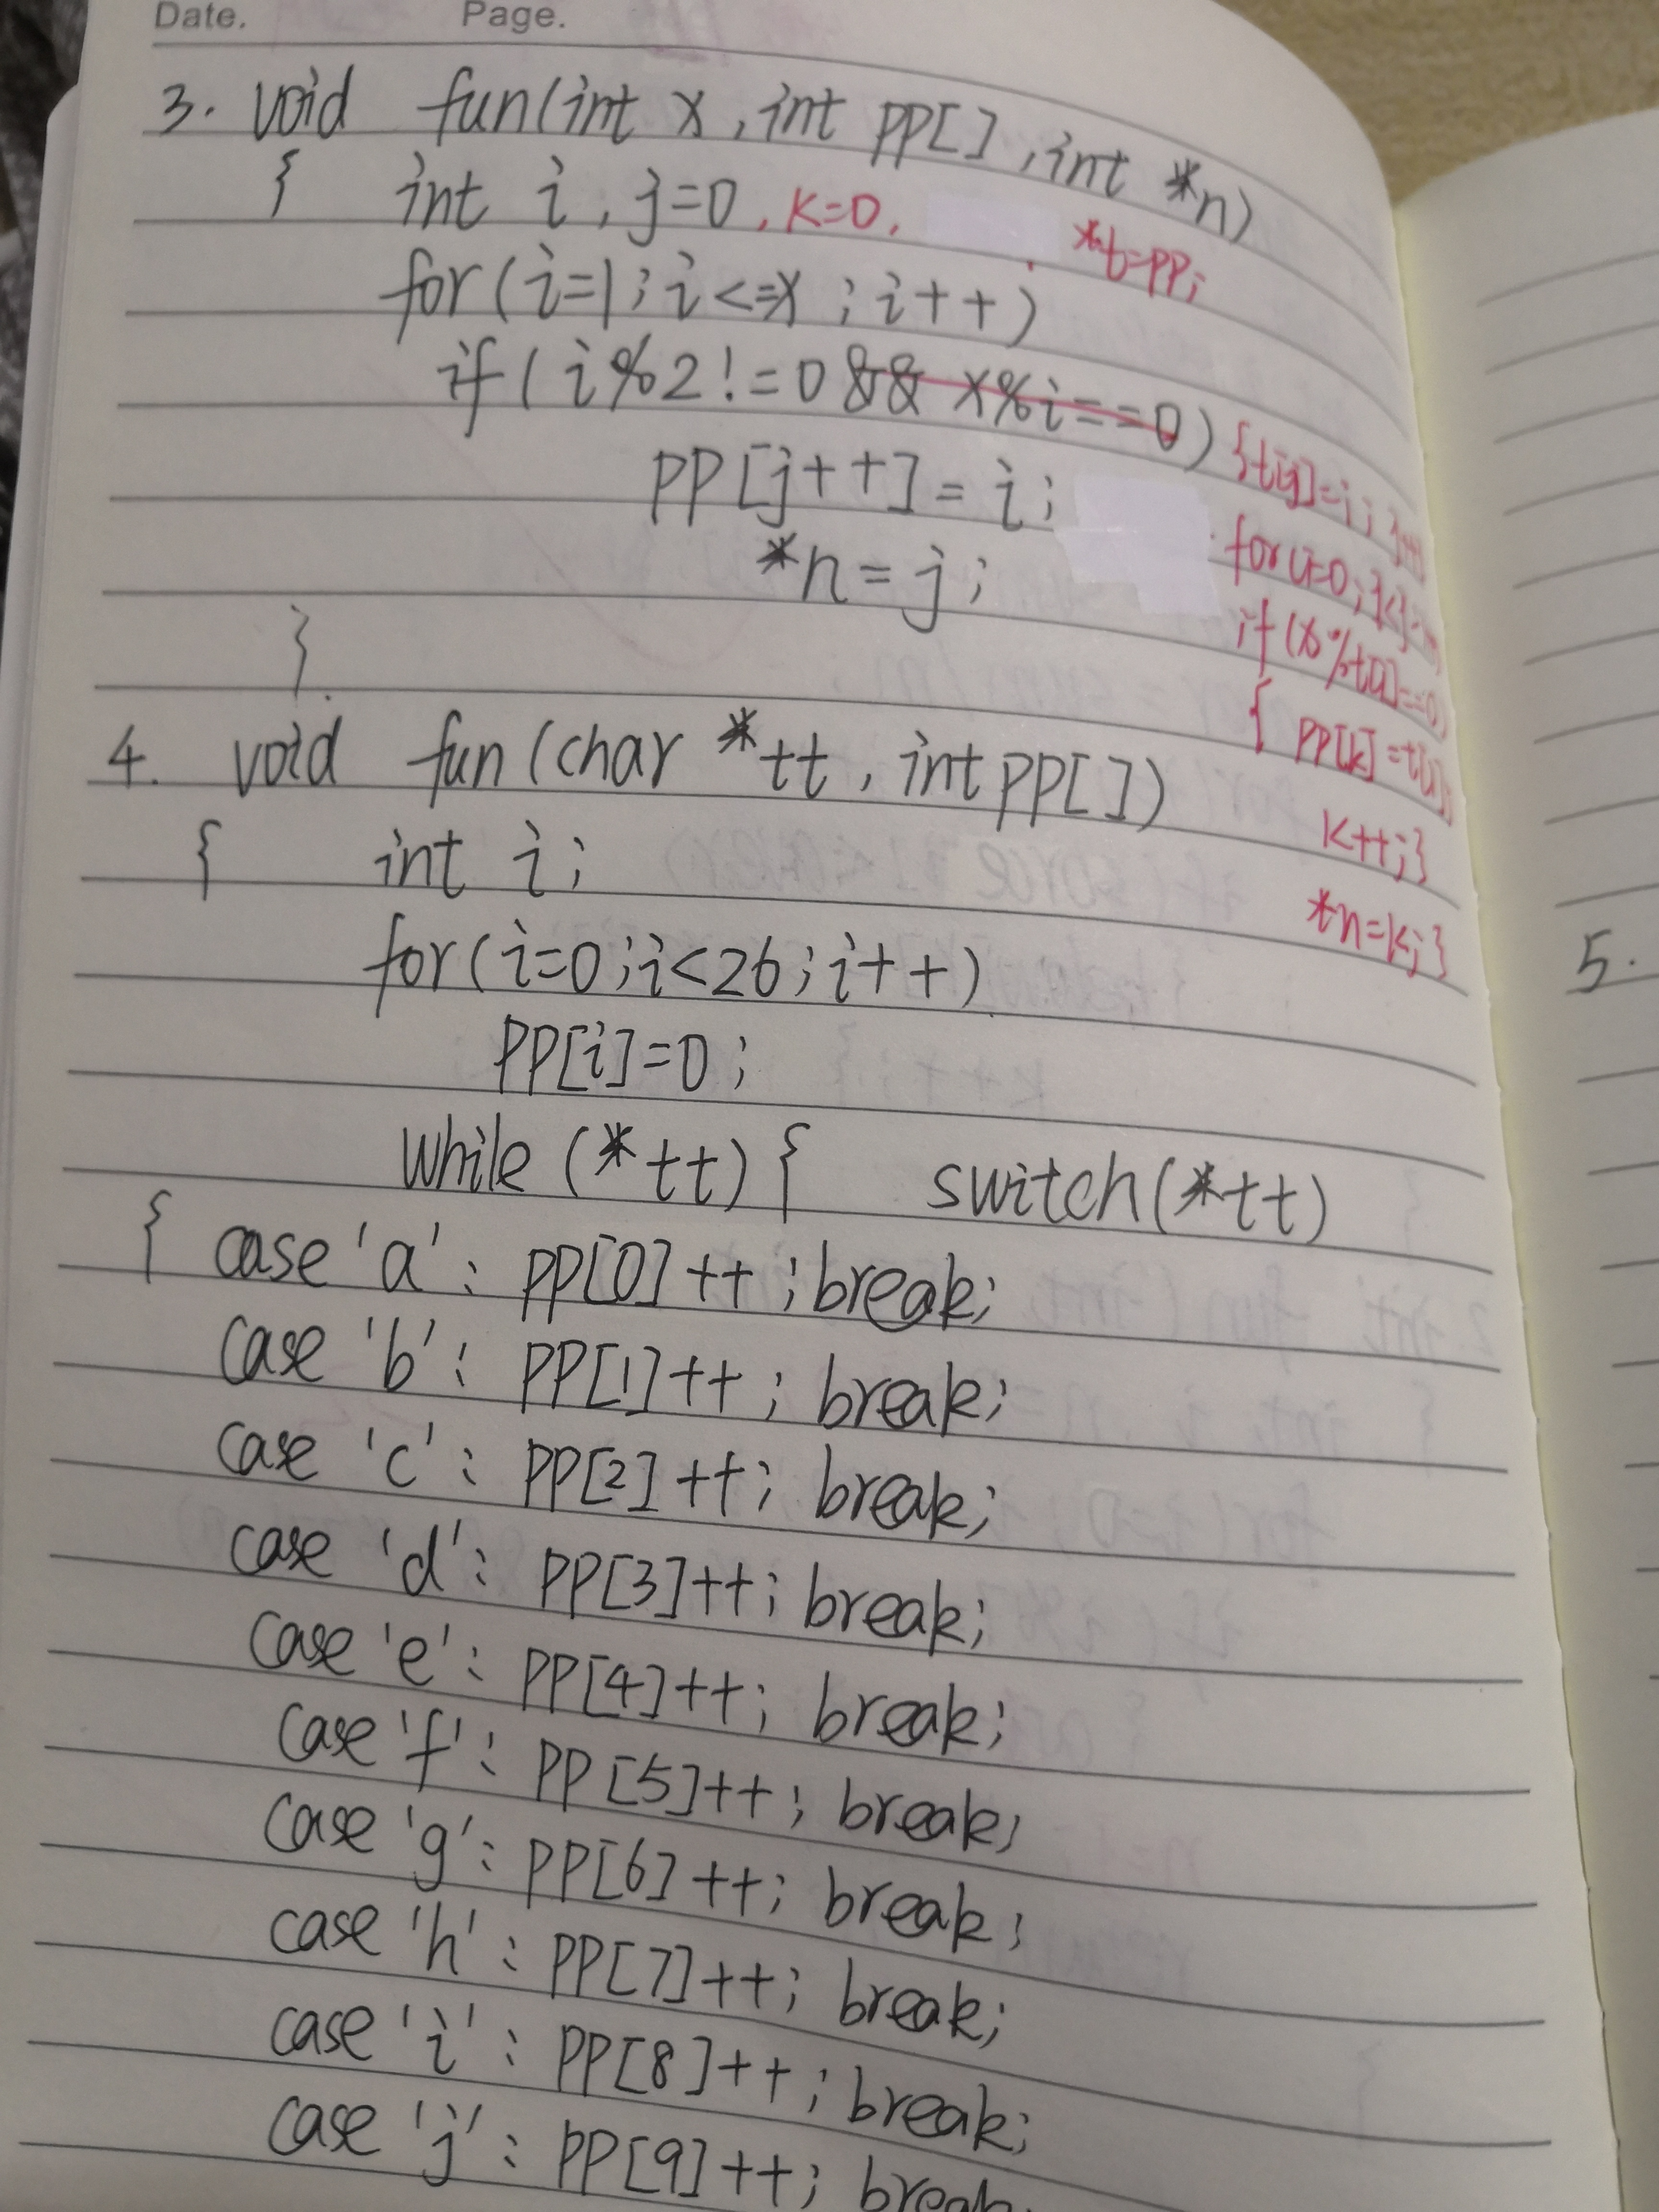 Date. Page.
3. void fun(int x, int PP[], int *n)
{ int i, j=0, k=0, *t=PP;
for(i=1; i<=x; i++)
if(i%2!=0 && x%i==0) {t[j]=i; j++
PP[j++]=i; for(i=0;
*n=j; if(x%t[i]==0)
} { PP[k]=t[i];
k++;}
*n=k;}
4. void fun(char *tt, int PP[])
{ int i;
for(i=0; i<26; i++)
PP[i]=0;
while(*tt){ switch(*tt)
{ case 'a': PP[0]++; break;
case 'b': PP[1]++; break;
case 'c': PP[2]++; break;
case 'd': PP[3]++; break;
case 'e': PP[4]++; break;
case 'f': PP[5]++; break;
case 'g': PP[6]++; break;
case 'h': PP[7]++; break;
case 'i': PP[8]++; break;
case 'j': PP[9]++; break
5.